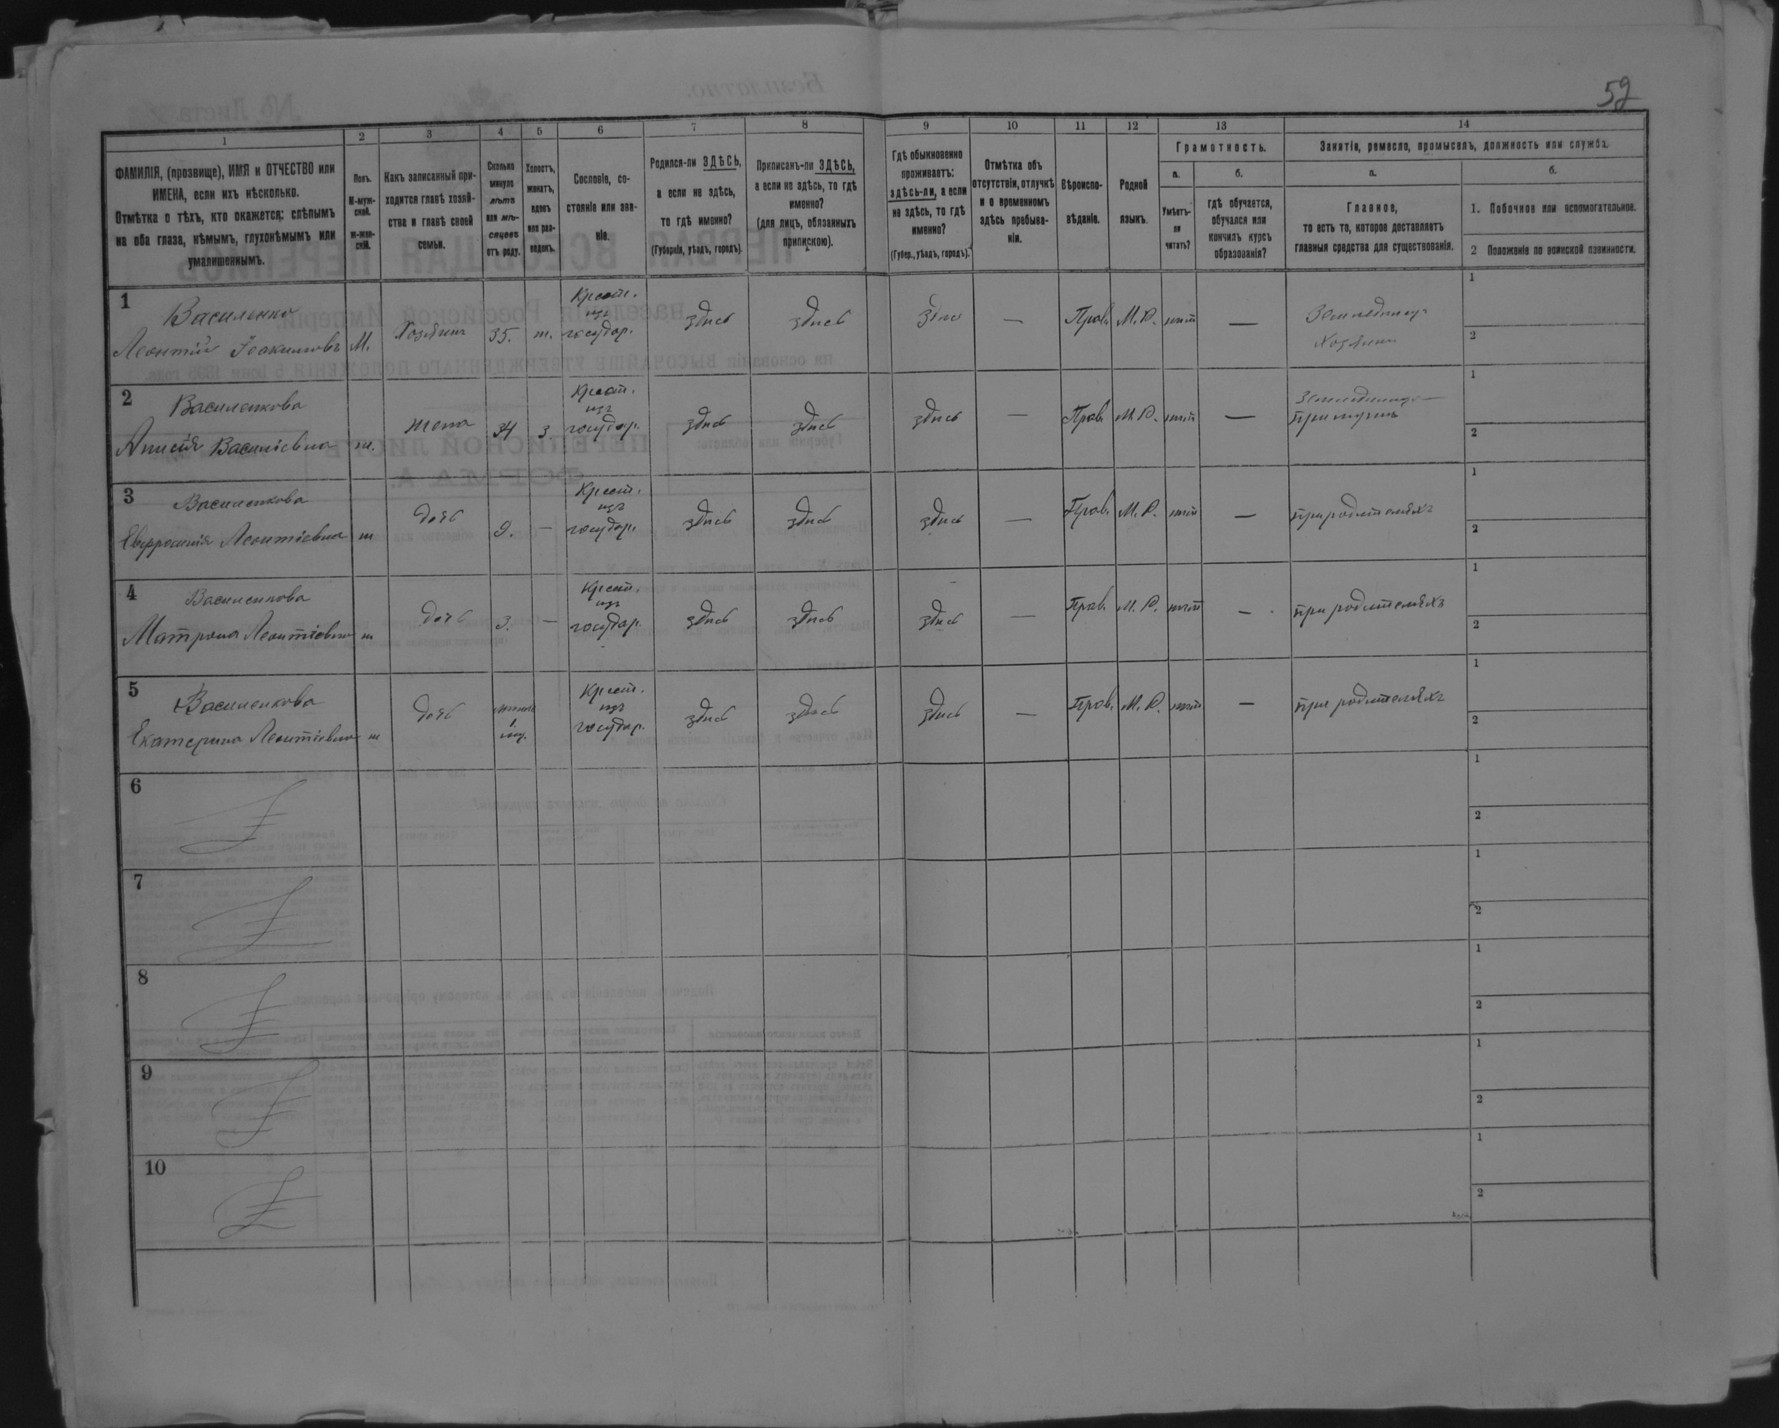 59
1
2
3
4
5
6
7
8
9
10
11
12
13
14
ФАМИЛІЯ, (прозвище), ИМЯ и ОТЧЕСТВО или
ИМЕНА, если ихъ нѣсколько.
Отмѣтка о тѣхъ, кто окажется: слѣпымъ
на оба глаза, нѣмымъ, глухонѣмымъ или
умалишеннымъ.
Полъ.
М-муж-
ской.
ж-жен-
скій.
Какъ записанный при-
ходится главѣ хозяй-
ства и главѣ своей
семьи.
Сколько
минуло
лѣтъ
или мѣ-
сяцевъ
отъ роду.
Холостъ,
женатъ,
вдовъ
или раз-
веденъ.
Сословіе, со-
стояніе или зва-
ніе.
Родился-ли ЗДѢСЬ,
а если не здѣсь,
то гдѣ именно?
(Губернія, уѣздъ, городъ).
Приписанъ-ли ЗДѢСЬ,
а если не здѣсь, то гдѣ
именно?
(для лицъ, обязанныхъ
припискою).
Гдѣ обыкновенно
проживаетъ:
здѣсь-ли, а если
не здѣсь, то гдѣ
именно?
(Губер., уѣздъ, городъ).
Отмѣтка объ
отсутствіи, отлучкѣ
и о временномъ
здѣсь пребыва-
ніи.
Вѣроиспо-
вѣданіе.
Родной
языкъ.
Грамотность.
а.
Умѣетъ-
ли
читать?
б.
гдѣ обучается,
обучался или
кончилъ курсъ
образованія?
Занятіе, ремесло, промыселъ, должность или служба.
а.
Главное,
то есть то, которое доставляетъ
главныя средства для существованія.
б.
1. Побочное или вспомогательное.
2 Положеніе по воинской повинности.
1
Василенко
Леонтій Іоакимовъ М. Хозяинъ 35. ж. Крест. изъ государ. здѣсь здѣсь здѣсь — Прав. М.Р. нѣтъ — Земледѣлецъ Хозяинъ 1 2
2
Василенкова
Василіевна ж. жена 34 з Крест. изъ государ. здѣсь здѣсь здѣсь — Прав. М.Р. нѣтъ — при мужѣ 1 2
3
Василенкова
Евфросинія Леонтіевна ж дочь 9. — Крест. изъ государ. здѣсь здѣсь здѣсь — Прав. М.Р. нѣтъ — при родителяхъ 1 2
4
Василенкова
Матрона Леонтіевна ж дочь 3. — Крест. изъ государ. здѣсь здѣсь здѣсь — Прав. М.Р. нѣтъ — при родителяхъ 1 2
5
Василенкова
Екатерина Леонтіевна ж дочь 1 — Крест. изъ государ. здѣсь здѣсь здѣсь — Прав. М.Р. нѣтъ — при родителяхъ 1 2
6 1 2
7 1 2
8 1 2
9 1 2
10 1 2